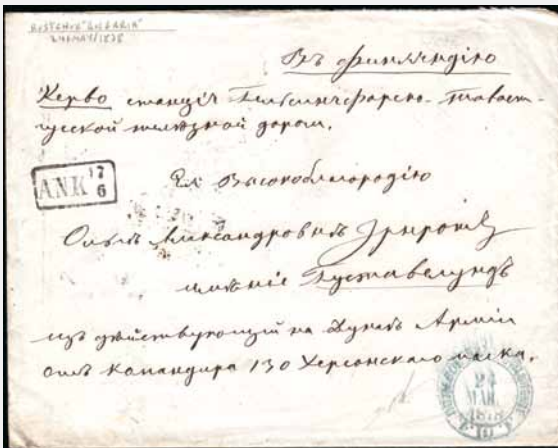 RUSTCHUK "BULGARIA"
24 MAY/1878
Въ Финляндію
Керво станція Гельсингфорско-Тавast-
гусской желѣзной дороги.
ANK 17
6
Ея Высокоблагородію
Александровнѣ
имѣніе Густавелундъ
изъ дѣйствующей на Дунаѣ Арміи
отъ Командира 130 Херсонскаго полка.
24
МАЯ
1878